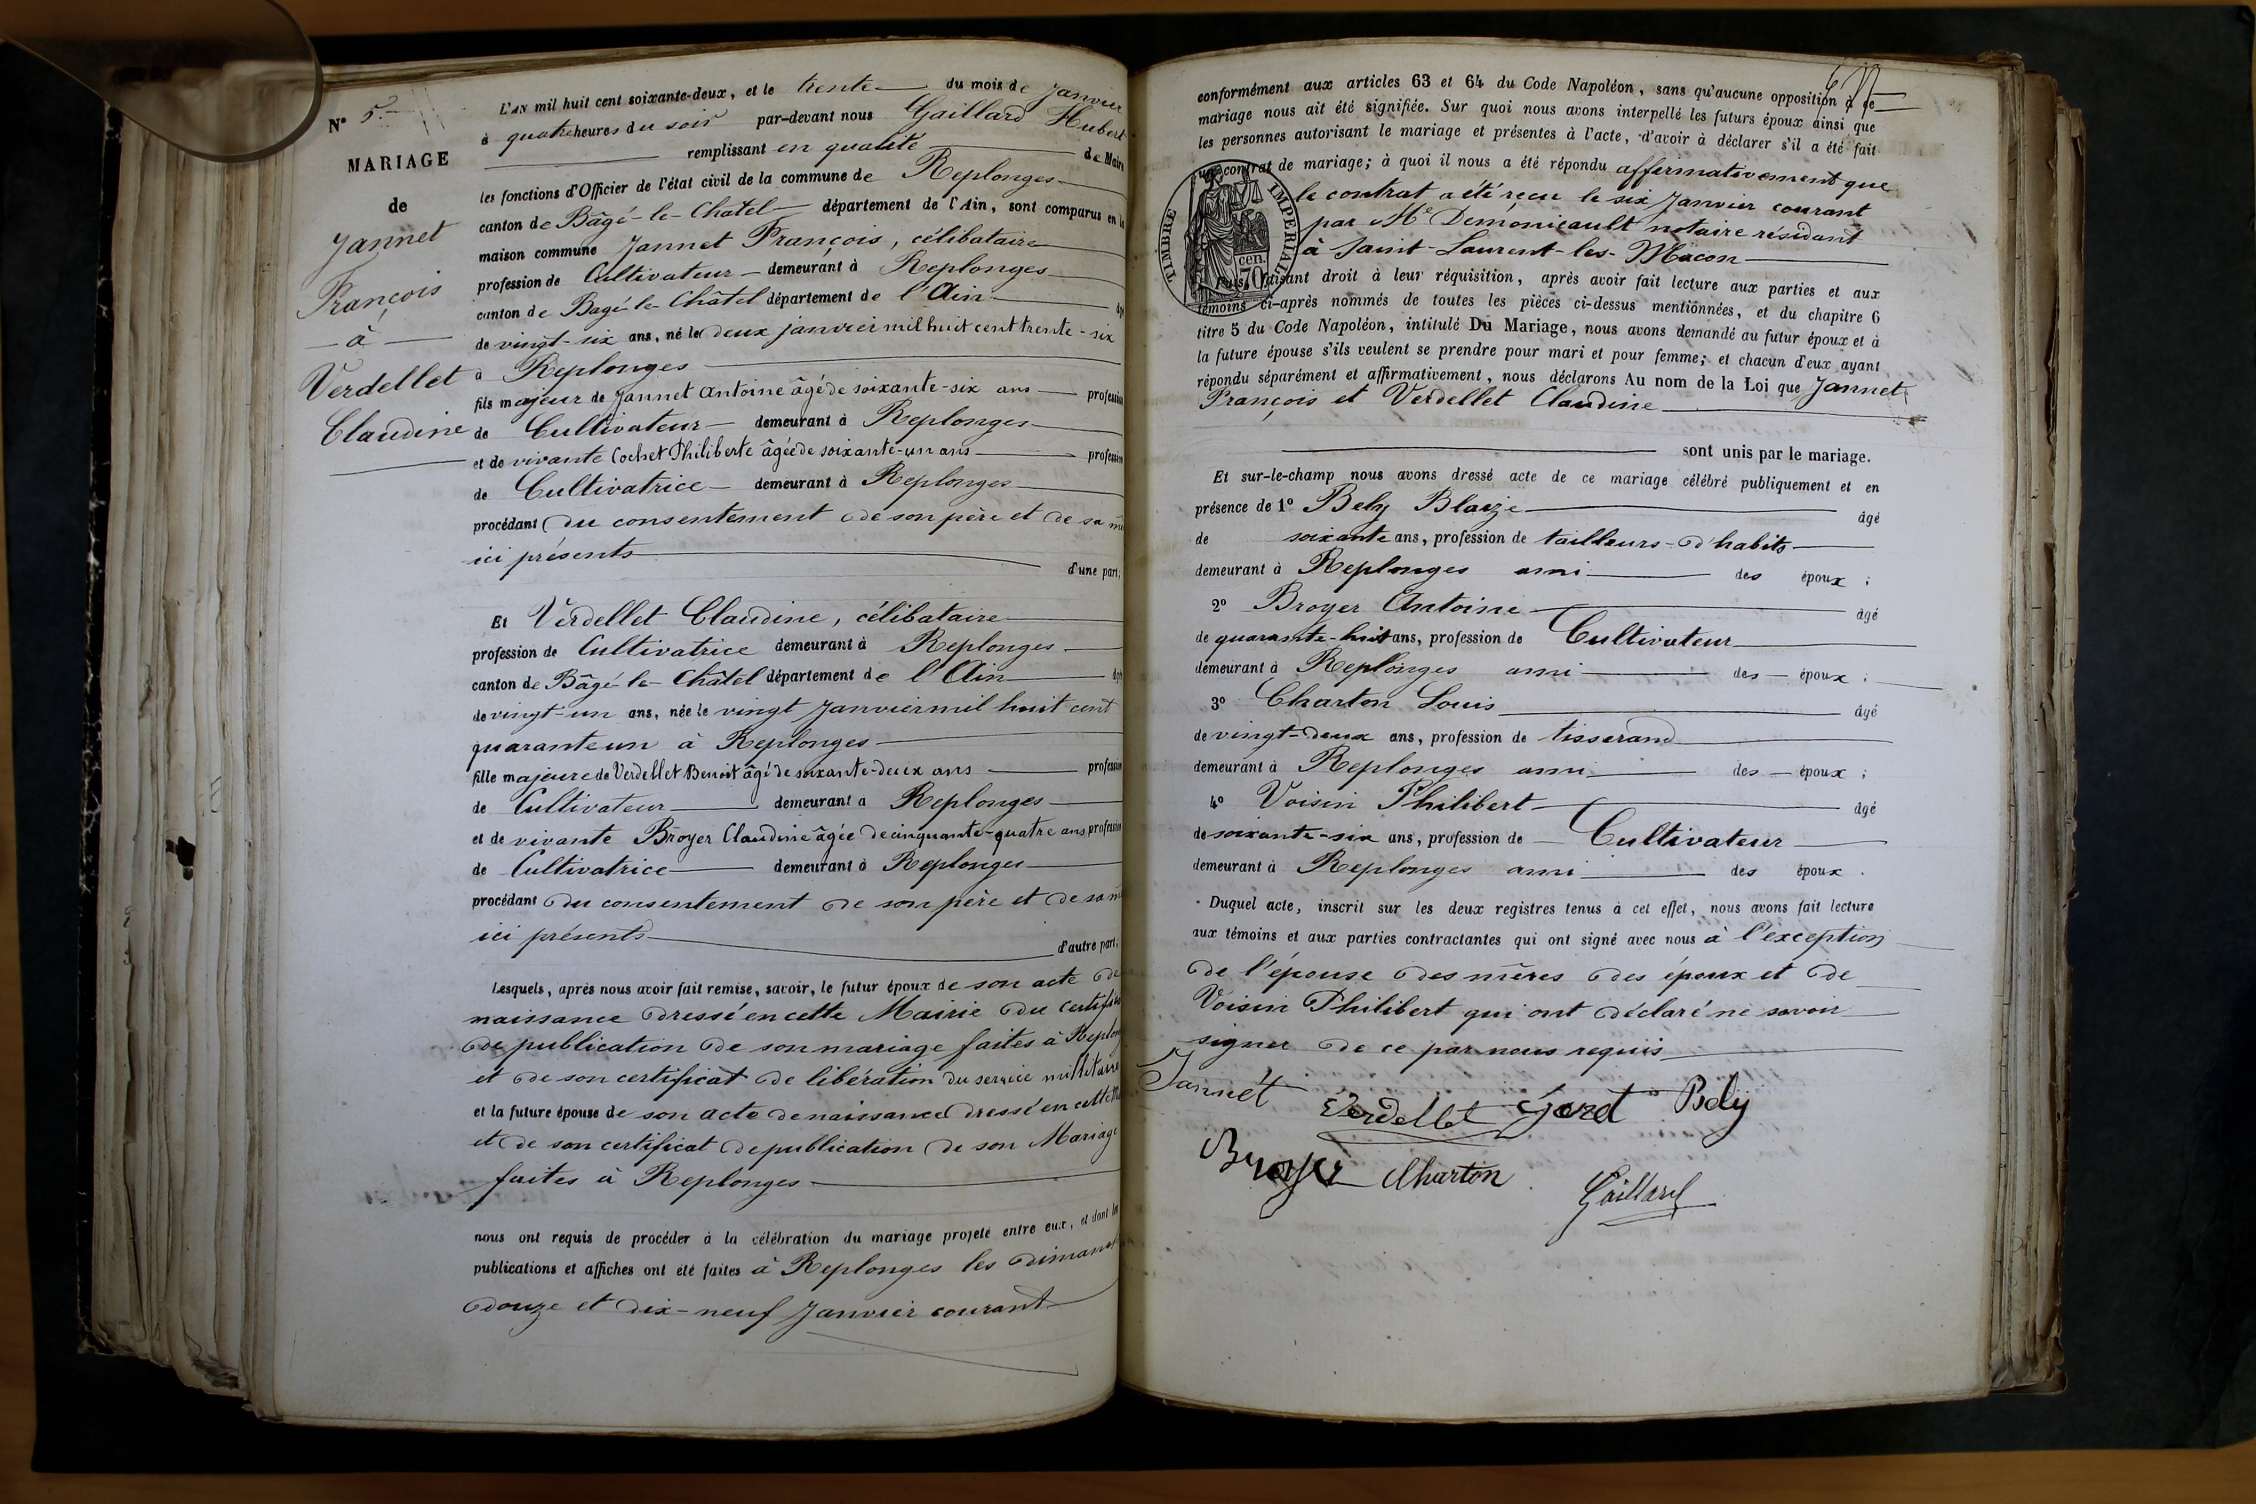 N° 5.
MARIAGE
de
Jannet
François
— à —
Verdellet
Claudine
L'AN mil huit cent soixante-deux, et le trente du mois de Janvier
à quatre heures du soir par-devant nous Gaillard Hubert
remplissant en qualité de Maire
les fonctions d'Officier de l'état civil de la commune de Replonges
canton de Bâgé-le-Chatel département de l'Ain, sont comparus en la
maison commune Jannet François, célibataire
profession de Cultivateur demeurant à Replonges
canton de Bagé-le-Châtel département de l'Ain âgé
de vingt-six ans, né le deux janvier mil huit cent trente-six
à Replonges
fils majeur de Jannet Antoine âgé de soixante-six ans profession
de Cultivateur demeurant à Replonges
et de vivante Cochet Philiberte âgée de soixante-un ans profession
de Cultivatrice demeurant à Replonges
procédant du consentement de son père et de sa
ici présents
d'une part;
Et Verdellet Claudine, célibataire
profession de Cultivatrice demeurant à Replonges
canton de Bâgé-le-Châtel département de l'Ain âgé
de vingt-un ans, née le vingt Janvier mil huit cent
quarante un à Replonges
fille majeure de Verdellet Benoit âgé de soixante-deux ans profession
de Cultivateur demeurant à Replonges
et de vivante Broyer Claudine âgée de cinquante-quatre ans, profession
de Cultivatrice demeurant à Replonges
procédant du consentement de son père et de sa
ici présents
d'autre part;
Lesquels, après nous avoir fait remise, savoir, le futur époux de son acte de
naissance dressé en cette Mairie du certificat
de publication de son mariage faites à Replon
et de son certificat de libération du service militaire
et la future épouse de son acte de naissance dressé en cette
et de son certificat de publication de son Mariage
faites à Replonges
nous ont requis de procéder à la célébration du mariage projeté entre eux, et dont les
publications et affiches ont été faites à Replonges les dimanch
douze et dix-neuf Janvier courant
conformément aux articles 63 et 64 du Code Napoléon, sans qu'aucune opposition à ce
mariage nous ait été signifiée. Sur quoi nous avons interpellé les futurs époux ainsi que
les personnes autorisant le mariage et présentes à l'acte, d'avoir à déclarer s'il a été fait
un contrat de mariage; à quoi il nous a été répondu affirmativement que
le contrat a été reçu le six Janvier courant
par Me Demonicault notaire résidant
à Saint-Laurent-les-Macon
TIMBRE IMPERIAL
cen. 70
Puis, faisant droit à leur réquisition, après avoir fait lecture aux parties et aux
témoins ci-après nommés de toutes les pièces ci-dessus mentionnées, et du chapitre 6
titre 5 du Code Napoléon, intitulé Du Mariage, nous avons demandé au futur époux et à
la future épouse s'ils veulent se prendre pour mari et pour femme; et chacun d'eux ayant
répondu séparément et affirmativement, nous déclarons Au nom de la Loi que Jannet
François et Verdellet Claudine
sont unis par le mariage.
Et sur-le-champ nous avons dressé acte de ce mariage célébré publiquement et en
présence de 1° Bely Blaize âgé
de soixante ans, profession de tailleurs-d'habits
demeurant à Replonges ami des époux;
2° Broyer Antoine âgé
de quarante-huit ans, profession de Cultivateur
demeurant à Replonges ami des époux;
3° Charton Louis âgé
de vingt-deux ans, profession de tisserand
demeurant à Replonges ami des époux;
4° Voisin Philibert âgé
de soixante-six ans, profession de Cultivateur
demeurant à Replonges ami des époux.
Duquel acte, inscrit sur les deux registres tenus à cet effet, nous avons fait lecture
aux témoins et aux parties contractantes qui ont signé avec nous à l'exception
de l'épouse des mères des époux et de
Voisin Philibert qui ont déclaré ne savoir
signer de ce par nous requis
Jannet Verdellet Bely
Broyer Charton Gaillard